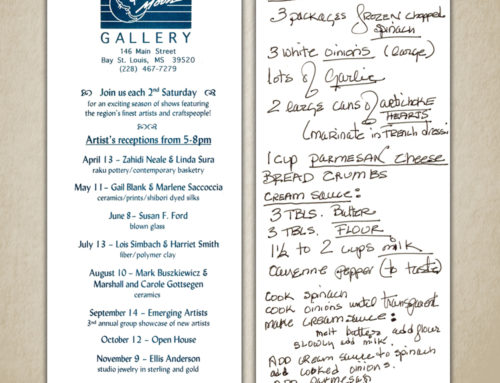 GALLERY
146 Main Street
Bay St. Louis, MS 39520
(228) 467-7279
Join us each 2nd Saturday
for an exciting season of shows featuring
the region's finest artists and craftspeople!
Artist's receptions from 5-8pm
April 13 – Zahidi Neale & Linda Sura
raku pottery/contemporary basketry
May 11 – Gail Blank & Marlene Saccoccia
ceramics/prints/shibori dyed silks
June 8 – Susan F. Ford
blown glass
July 13 – Lois Simbach & Harriet Smith
fiber/polymer clay
August 10 – Mark Buszkiewicz &
Marshall and Carole Gottsegen
ceramics
September 14 – Emerging Artists
3rd annual group showcase of new artists
October 12 – Open House
November 9 – Ellis Anderson
studio jewelry in sterling and gold
3 packages frozen chopped
spinach
3 white onions (large)
lots of Garlic
2 large cans of artichoke
HEARTS
(marinate in French dressi
1 cup PARMESAN cheese
BREAD CRUMBS
CREAM SAUCE:
3 TBLS. Butter
3 TBLS. FLOUR
1½ to 2 cups milk
Cayenne pepper (to taste)
COOK spinach
COOK onions until transparent
make cream sauce:
melt butter add flour
slowly add milk.
ADD cream sauce to spinach
add cooked onions.
ADD parmesan